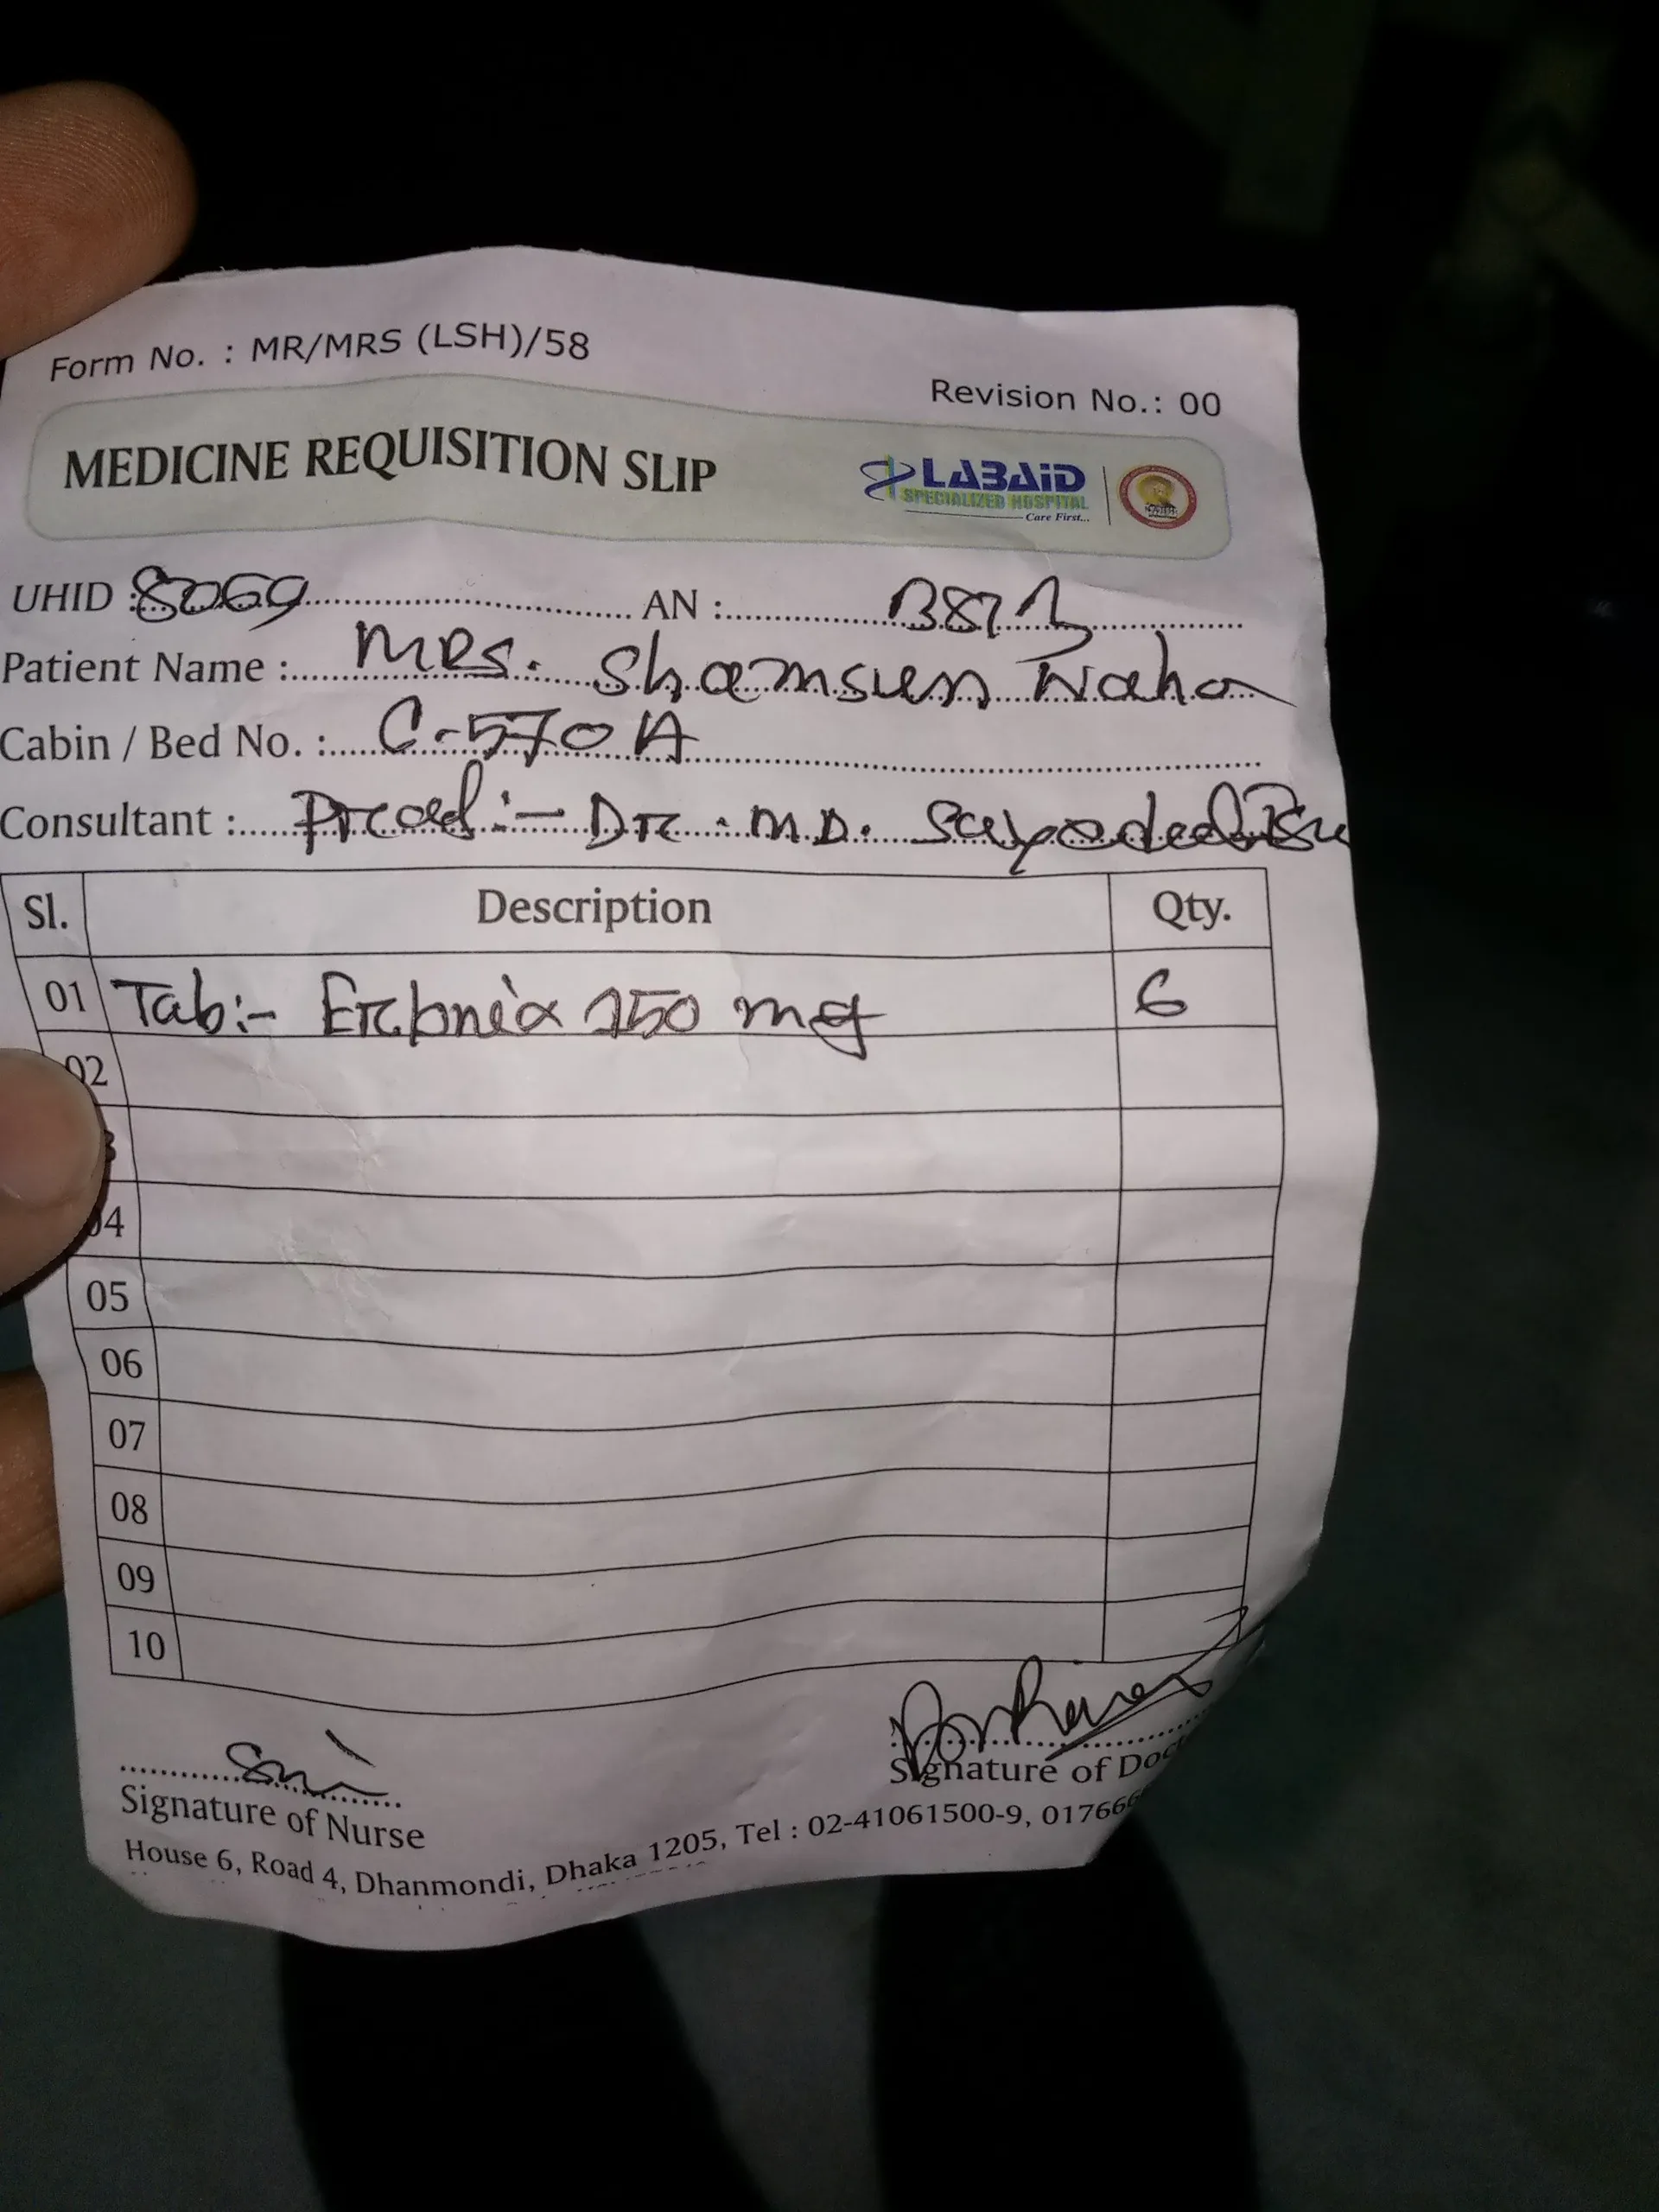 Form No. : MR/MRS (LSH)/58
Revision No.: 00
MEDICINE REQUISITION SLIP
LABAID
SPECIALIZED HOSPITAL
Care First...
UHID : 8069 AN :
Patient Name : MRS. Shamsun Naha
Cabin / Bed No. : C-570 A
Consultant : :- Dr. M.D.
Sl. Description Qty.
01 Tab:- 150 mg 6
02
04
05
06
07
08
09
10
Signature of Nurse
Signature of Doc
House 6, Road 4, Dhanmondi, Dhaka 1205, Tel : 02-41061500-9, 01766